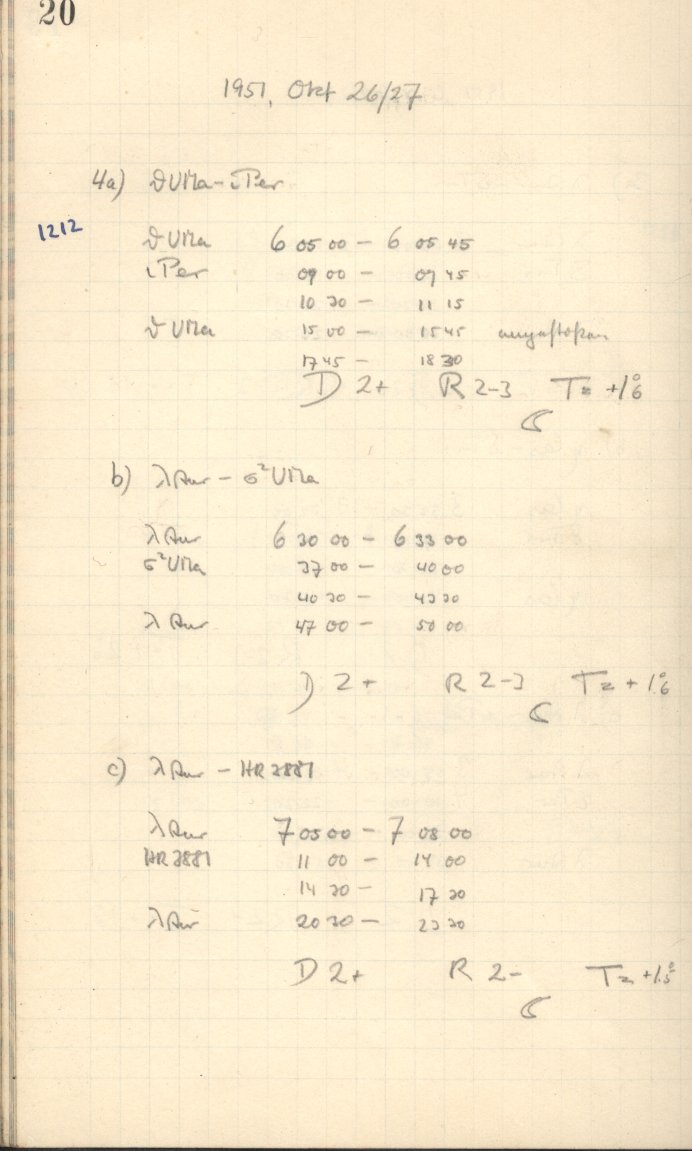 20
1951, Okt 26/27
4a) ϑ UMa - ι Per
1212
ϑ UMa 6 05 00 - 6 05 45
ι Per 09 00 - 09 45
10 30 - 11 15
ϑ UMa 15 00 - 15 45
17 45 - 18 30
D 2+ R 2-3 T = +1°.6
☾
b) λ Aur - σ² UMa
λ Aur 6 30 00 - 6 33 00
σ² UMa 37 00 - 40 00
40 30 - 43 30
λ Aur 47 00 - 50 00
D 2+ R 2-3 T = +1°.6
☾
c) λ Aur - HR 3881
λ Aur 7 05 00 - 7 08 00
HR 3881 11 00 - 14 00
14 30 - 17 30
λ Aur 20 30 - 23 30
D 2+ R 2- T = +1°.5
☾